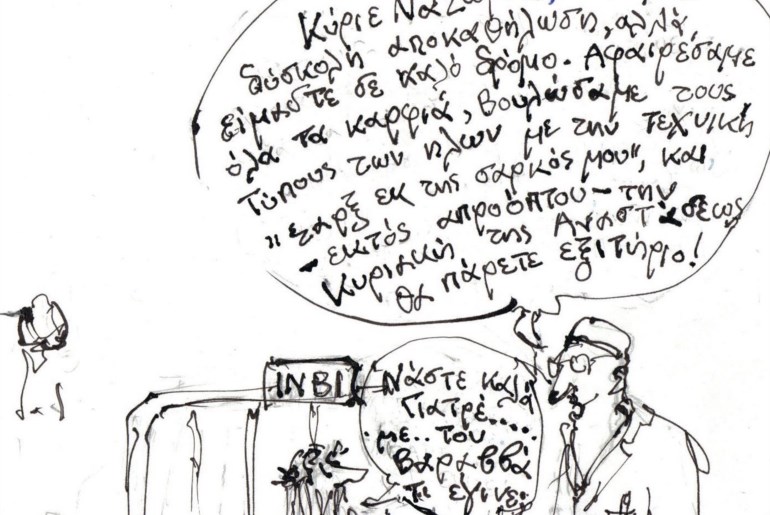 Κύριε Ναζω
δύσκολη αποκαθήλωση, αλλά
είμαστε σε καλό δρόμο. Αφαιρέσαμε
όλα τα καρφιά, βουλώσαμε τους
τύπους των ήλων με την τεχνική
"σαρξ εκ της σαρκός μου", και
- εκτός απροόπτου - την
Κυριακή της Αναστάσεως
θα πάρετε εξιτήριο!
ΙΝΒΙ
Νάστε καλά
Γιατρέ.....
με.. τον
Βαραββά
τι έγινε;